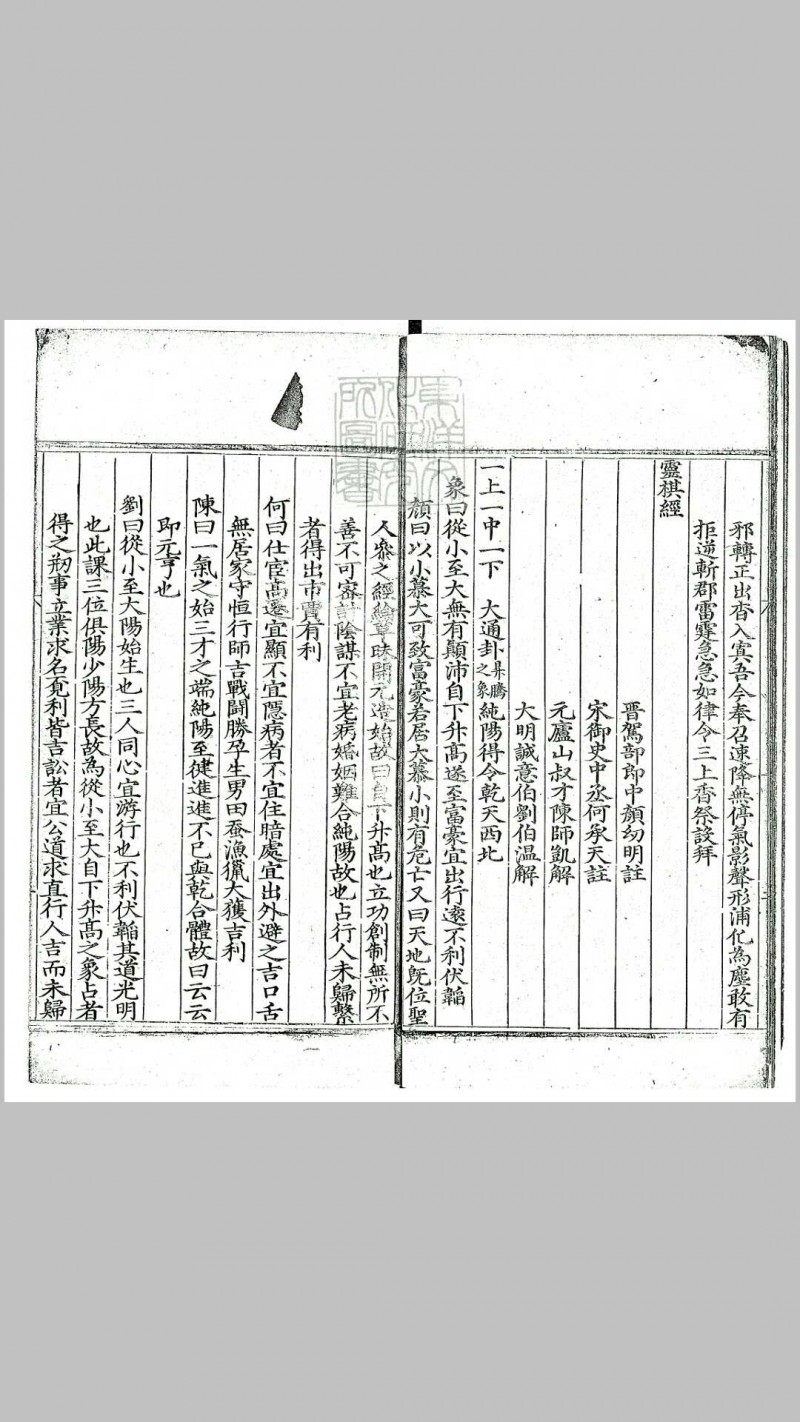 邪轉正出杳入冥吾今奉召速降無停氣影聲形浦化為塵敢有
拒逆斬郡雷霆急急如律令三上香祭設拜
靈棋經
晉駕部郎中顏幼明註
宋御史中丞何承天註
元廬山叔才陳師凱解
大明誠意伯劉伯温解
一上一中一下 大通卦昇騰之象純陽得令乾天西北
象曰從小至大無有顛沛自下升髙遂至富豪宜出行遠不利伏韜
顏曰以小慕大可致富豪若居大慕小則有危亡又曰天地旣位聖
人叅之經綸草昧開元造始故曰自下升髙也立功創制無所不
善不可審訃陰謀不宜老病婚姻難合純陽故也占行人未歸繫
者得出市賣有利
何曰仕宦髙遷宜顯不宜隱病者不宜住暗處宜出外避之吉口舌
無居家守恒行師吉戰鬪勝孕生男田蚕漁獵大獲吉利
陳曰一氣之始三才之端純陽至健進進不已與乾合體故曰云云
即元亨也
劉曰從小至大陽始生也三人同心宜游行也不利伏韜其道光明
也此課三位俱陽少陽方長故為從小至大自下升髙之象占者
得之刱事立業求名覓利皆吉訟者宜公道求直行人吉而未歸